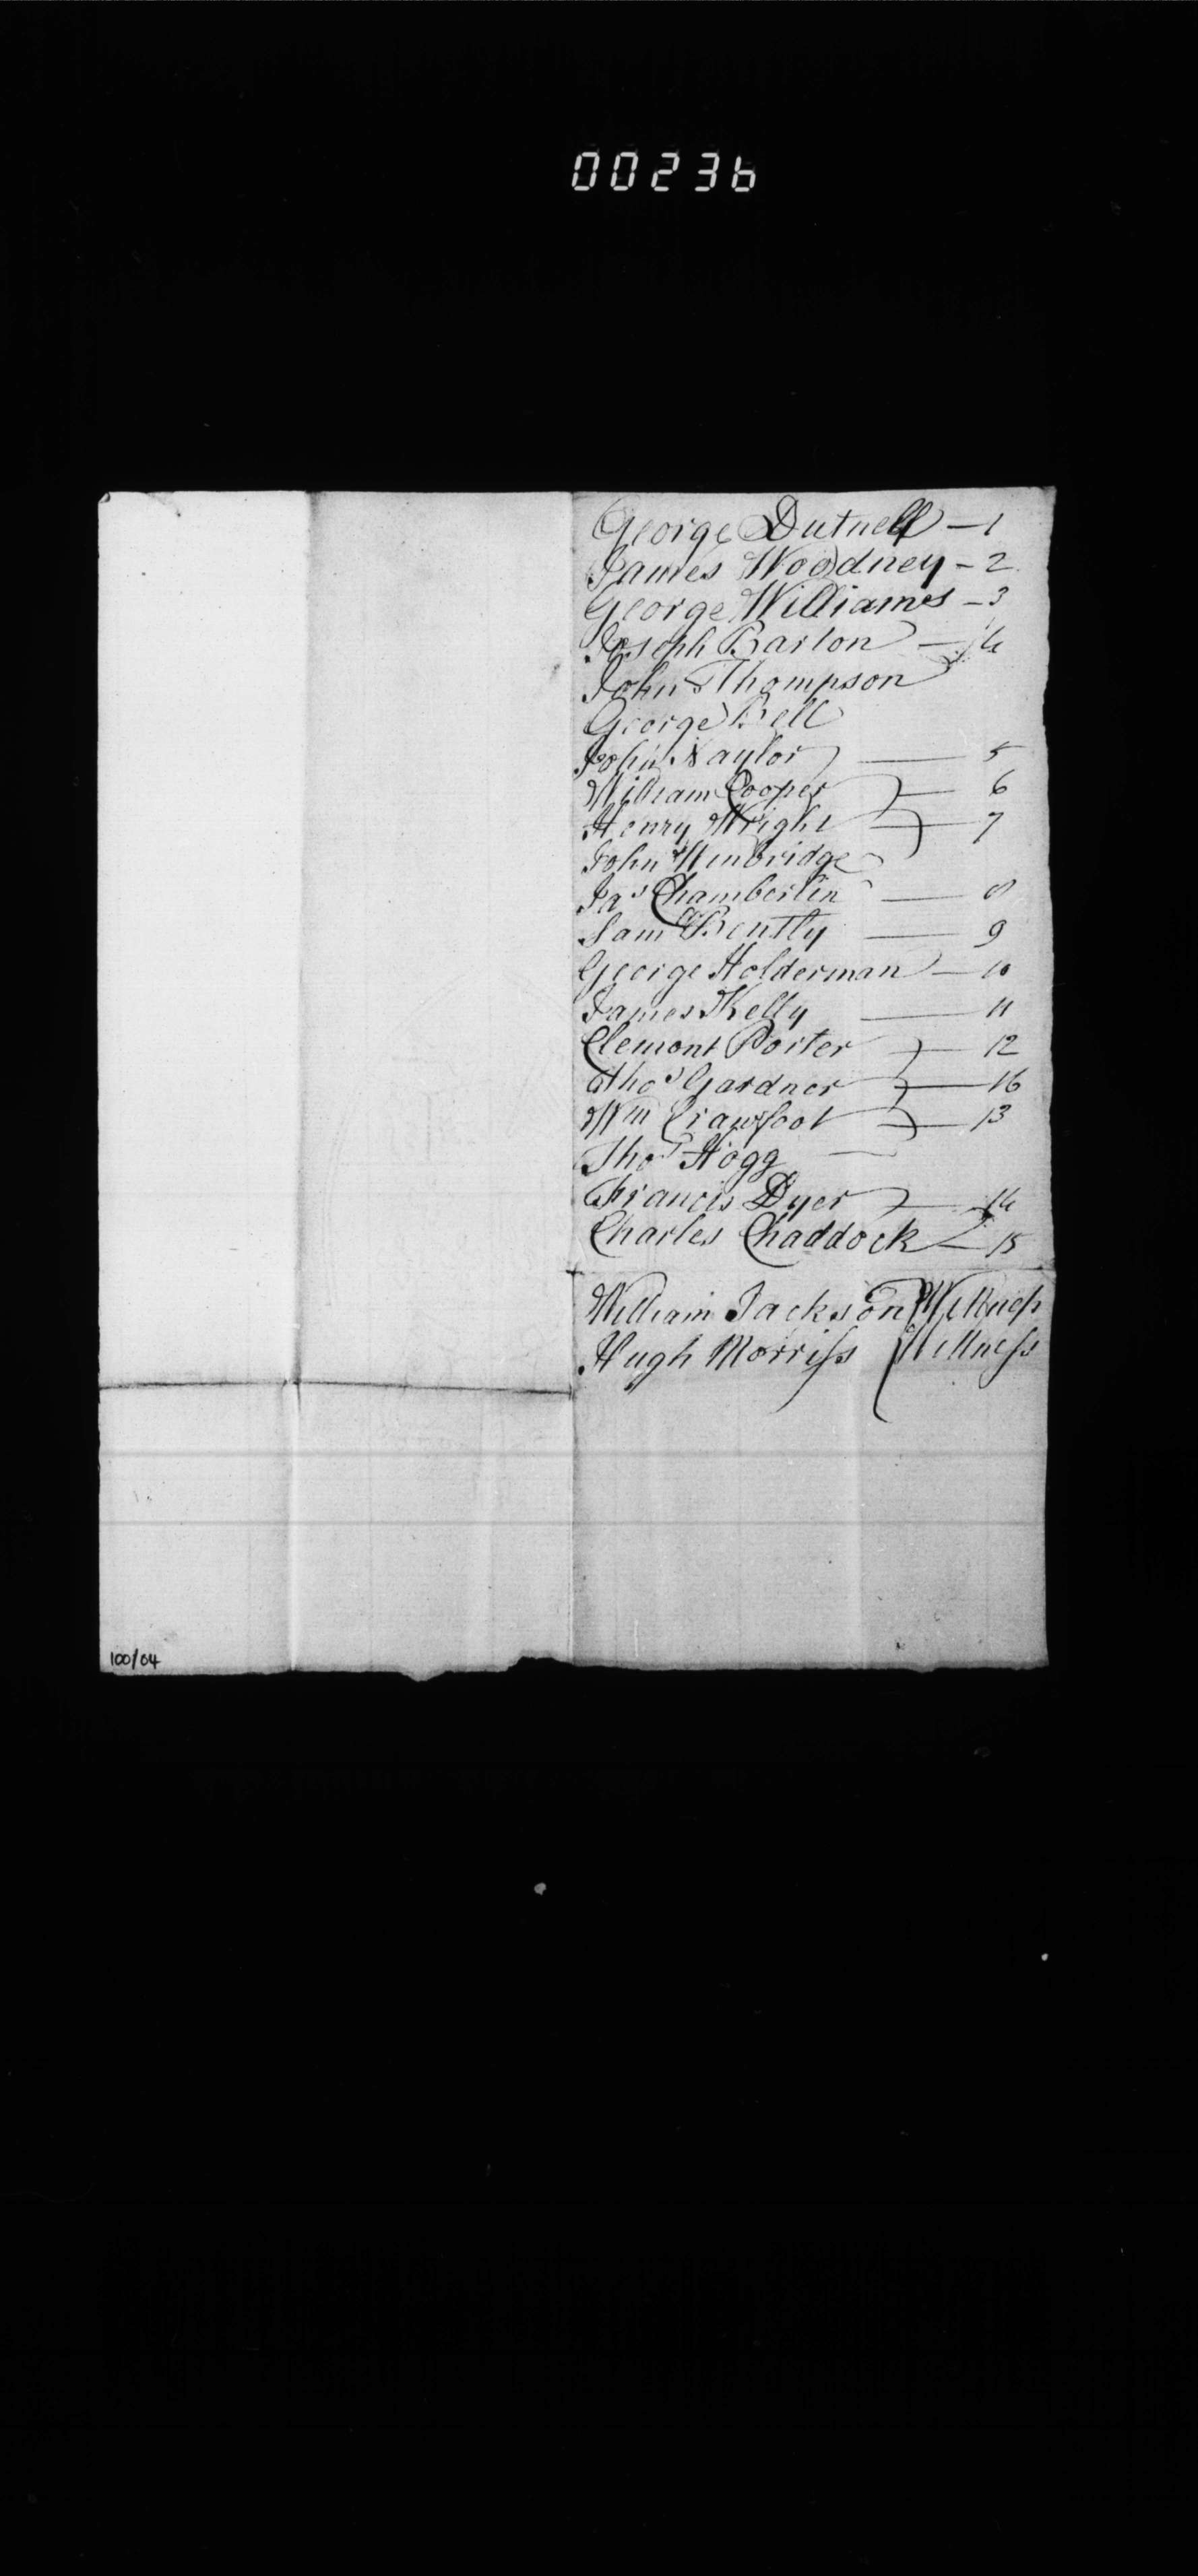 00236
George Dutnell — 1
James Woodney - 2
George Williames - 3
Joseph Barton — 4
John Thompson
George Bell
John Naylor — 5
William Cooper — 6
Henry Wright — 7
John Winbridge
Jas Chamberlin — 8
Saml Bently — 9
George Holderman — 10
James Kelly — 11
Clemont Porter — 12
Thos Gardner — 16
Wm Crawfoot — 13
Thos Hogg
Francis Dyer — 14
Charles Chaddock — 15
William Jackson Wittness
Hugh Morriss Wittness
100/04